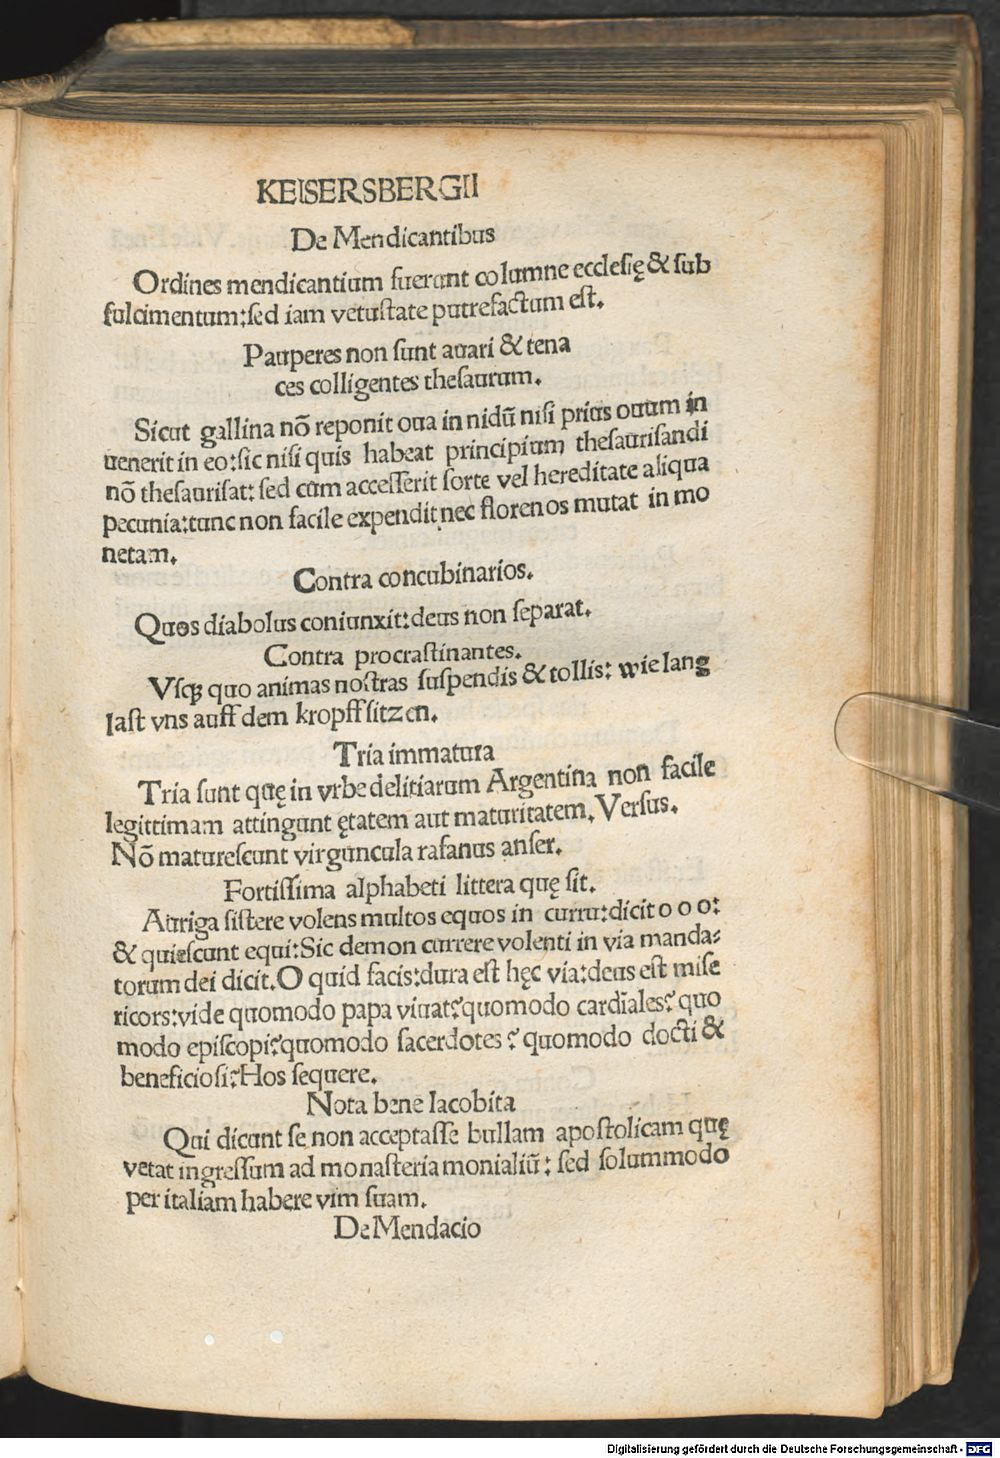 KEISERSBERGII
De Mendicantibus
Ordines mendicantium fuerunt columne ecclesię & sub
fulcimentum:sed iam vetustate putrefactum est.
Pauperes non sunt auari & tena
ces colligentes thesaurum.
Sicut gallina nō reponit oua in nidū nisi prius ouum in
uenerit in eo:sic nisi quis habeat principium thesaurisandi
nō thesaurisat: sed cum accesserit sorte vel hereditate aliqua
pecunia:tunc non facile expendit nec florenos mutat in mo
netam.
Contra concubinarios.
Quos diabolus coniunxit:deus non separat.
Contra procrastinantes.
Vsqꝫ quo animas nostras suspendis & tollis: wie lang
last vns auff dem kropff sitzen.
Tria immatura
Tria sunt quę in vrbe delitiarum Argentina non facile
legittimam attingunt ętatem aut maturitatem. Versus.
Nō maturescunt virguncula rafanus anser.
Fortissima alphabeti littera quę sit.
Auriga sistere volens multos equos in curru:dicit o o o:
& quiescunt equi:Sic demon currere volenti in via manda⸗
torum dei dicit.O quid facis:dura est hęc via:deus est mise
ricors:vide quomodo papa viuat?quomodo cardīales? quo
modo episcopi?quomodo sacerdotes ? quomodo docti &
beneficiosi?Hos sequere.
Nota bene Iacobita
Qui dicunt se non acceptasse bullam apostolicam quę
vetat ingressum ad monasteria monialiū: sed solummodo
per italiam habere vim suam.
De Mendacio
Digitalisierung gefördert durch die Deutsche Forschungsgemeinschaft - DFG